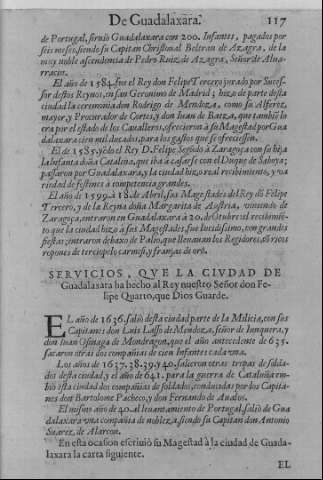 De Guadalaxara. 117
de Portugal, siruiò Guadalaxara con 200. Infantes, pagados por
seis meses, siendo su Capitan Christoual Beltran de Azagra, de la
muy noble ascendencia de Pedro Ruiz de Azagra, Señor de Alua-
rracin.
El año de 1584. fue el Rey don Felipe Tercero jurado por Suces-
sor destos Reynos, en san Geronimo de Madrid; hizo de parte desta
ciudad la ceremonia don Rodrigo de Mendoza, como su Alferez
mayor, y Procurador de Cortes, y don Iuan de Baeza, que tambiẽ lo
era por el estado de los Caualleros, ofrecieron à su Magestad por Gua
dalaxara cien mil ducados, para los gastos que se ofreciessen.
El de 1585. yẽdo el Rey D. Felipe Segũdo à Zaragoça con su hija
la Infanta doña Catalina, que iba à casarse con el Duque de Saboya;
passaron por Guadalaxara, y la ciudad hizo real recibimiento, y va
riedad de festines à competencia grandes.
El año de 1599. à 18. de Abril, sus Magestades del Rey dõ Felipe
Tercero, y de la Reyna doña Margarita de Austria, viniendo de
Zaragoça, entraron en Guadalaxara à 20. de Otubre: el recibimiẽ-
to que la ciudad hizo à sus Magestades, fue lucidissimo, con grandes
fiestas: entraron debaxo de Palio, que lleuauan los Regidores, cõ ricos
ropones de terciopelo carmesi, y franjas de oro.
SERVICIOS, QVE LA CIVDAD DE
Guadalaxara ha hecho al Rey nuestro Señor don Fe-
lipe Quarto, que Dios Guarde.
EL año de 1636. saliò desta ciudad parte de la Milicia, con sus
Capitanes don Luis Lasso de Mendoza, señor de Iunquera, y
don Iuan Osinaga de Mondragon, que el año antecedente de 635.
sacaron otras dos compañias de cien Infantes cada vna.
Los años de 1637. 38. 39. y 40. salieron otras tropas de solda-
dos desta ciudad, y el año de 641. para la guerra de Cataluña em-
biò esta ciudad dos compañias de soldados, conducidas por los Capita-
nes don Bartolome Pacheco, y don Fernando de Aualos.
El mismo año de 40. al leuantamiento de Portugal, saliò de Gua
dalaxara vna compañia de nobleza, siendo su Capitan don Antonio
Suarez, de Alarcon.
En esta ocasion escriuiò su Magestad à la ciudad de Guada-
laxara la carta siguiente.
EL